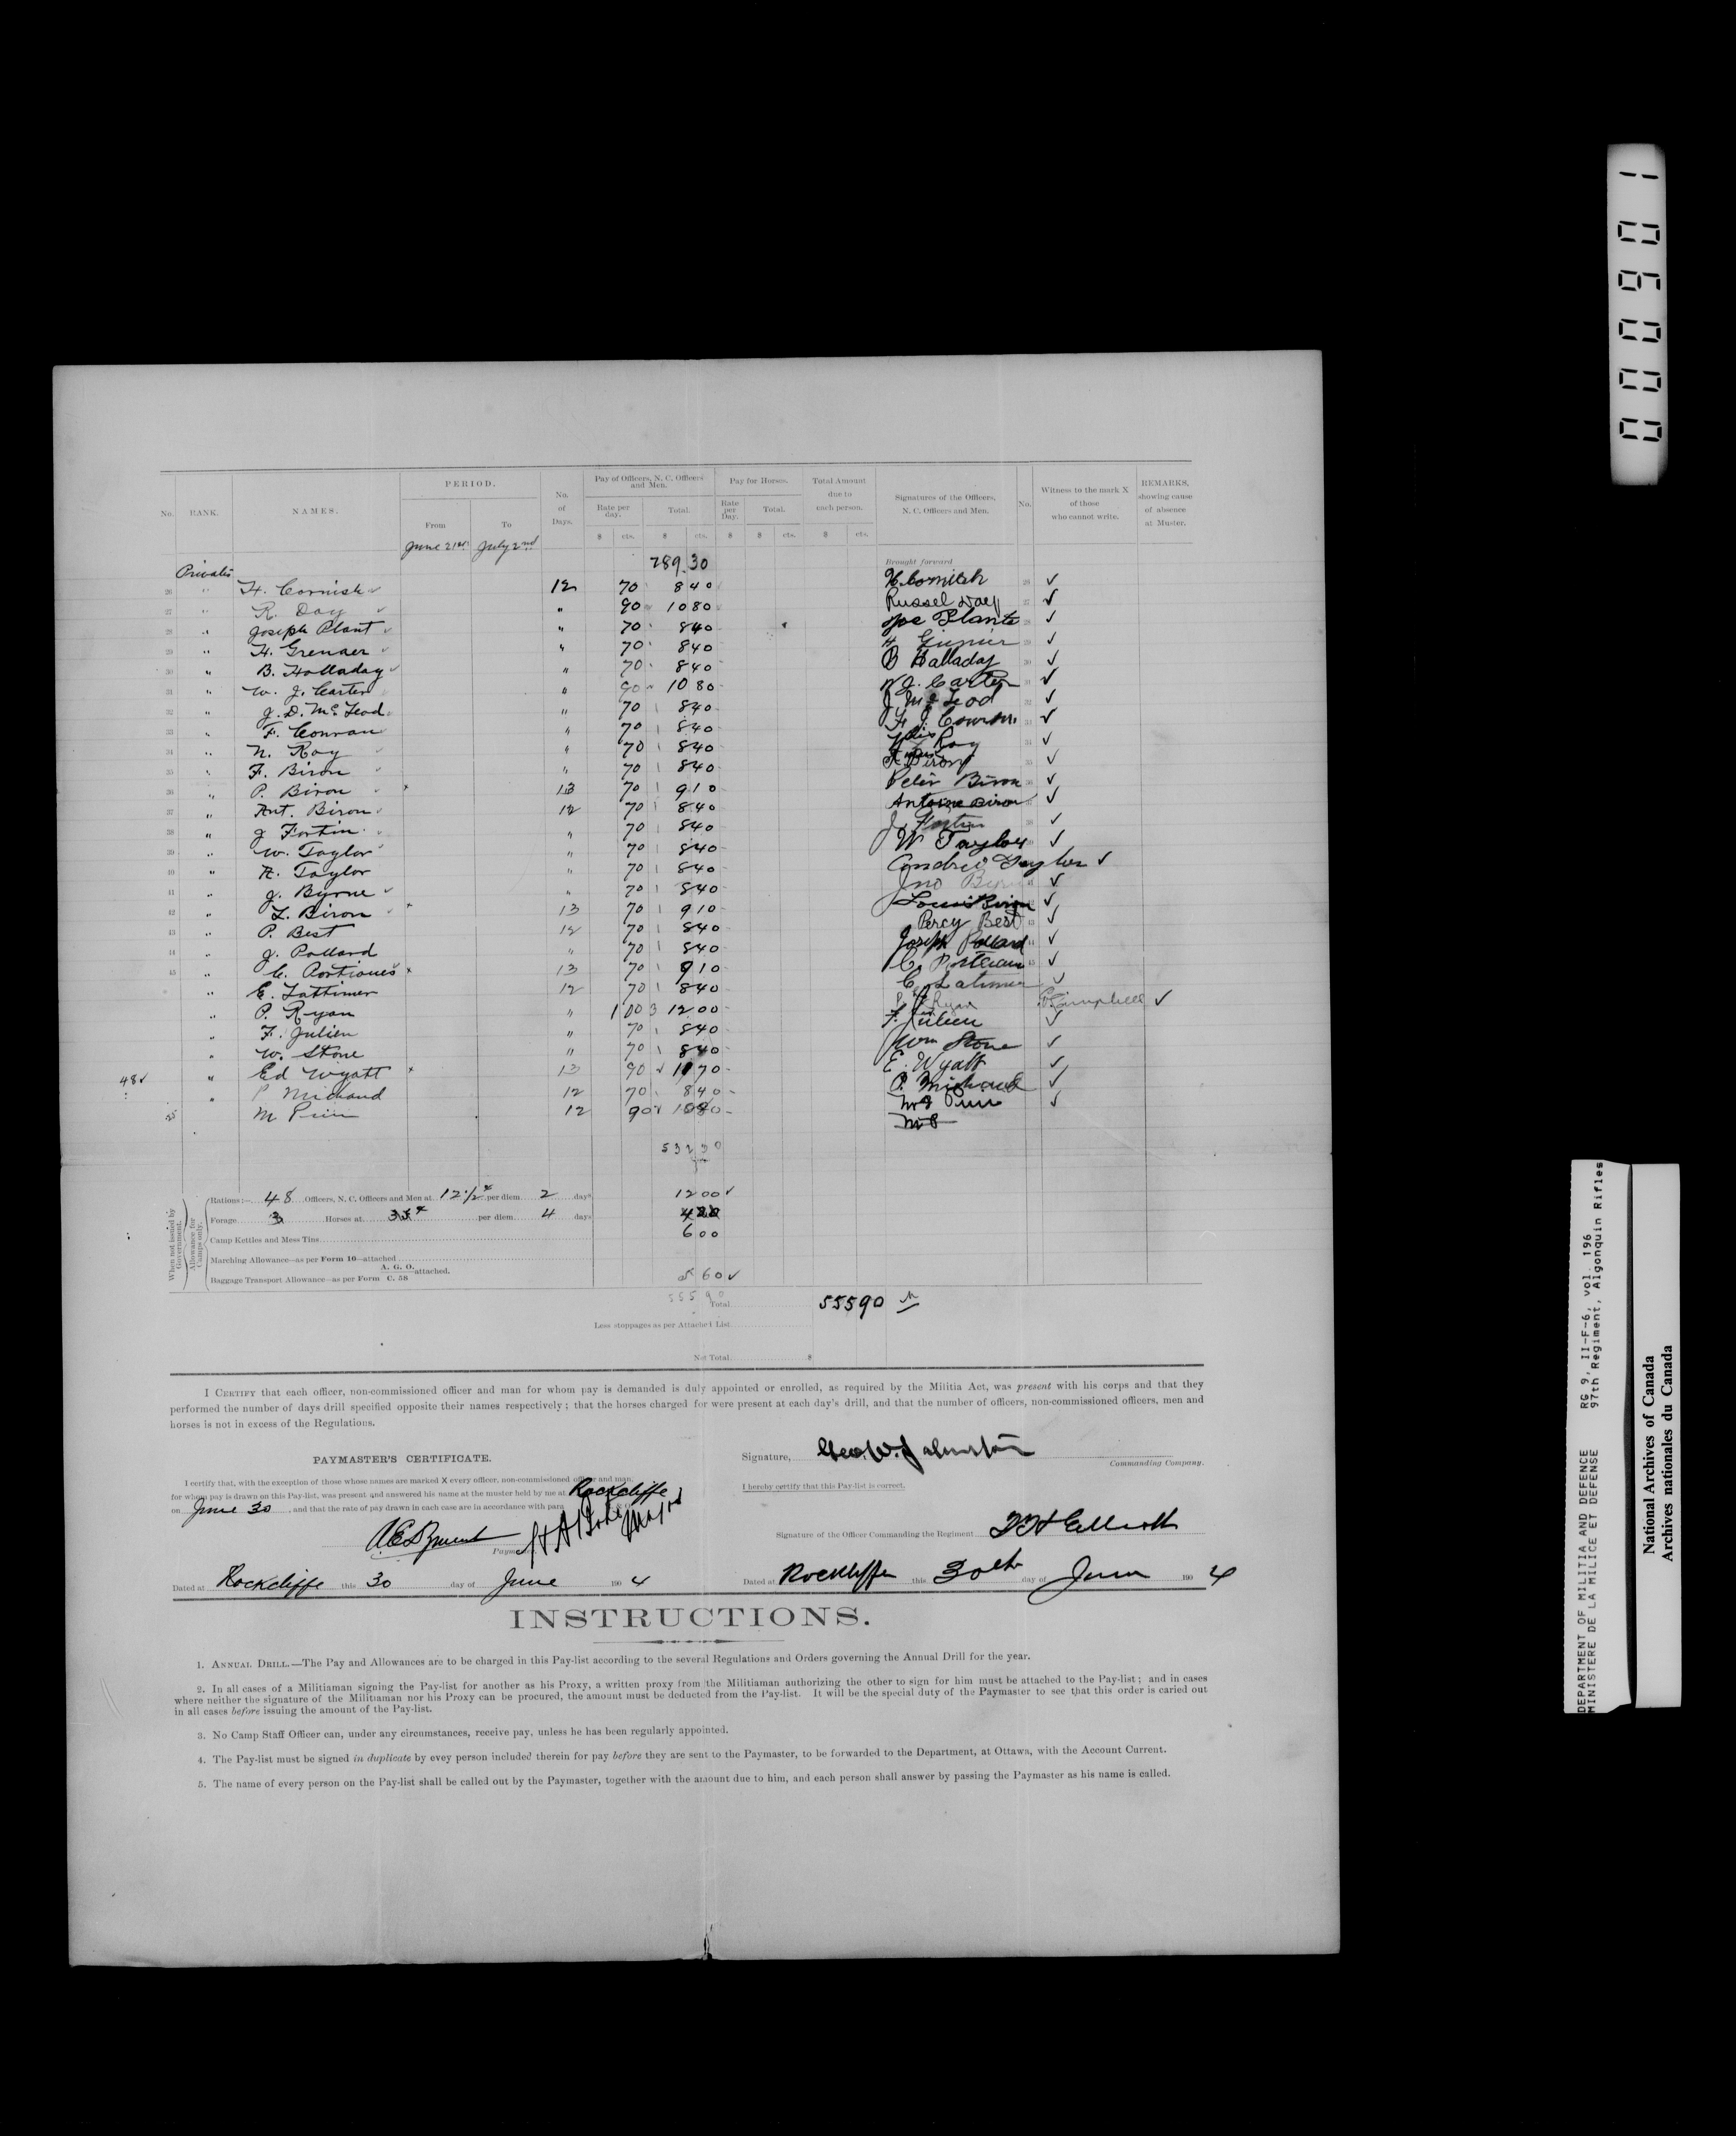 No. RANK. NAMES. PERIOD. From To No. of Days. Pay of Officers, N. C. Officers and Men. Rate per day. $ cts. Total. $ cts. Pay for Horses. Rate per Day. $ Total. $ cts. Total Amount due to each person. $ cts. Signatures of the Officers, N. C. Officers and Men. No. Witness to the mark X of those who cannot write. REMARKS, showing cause of absence at Muster.
June 21st July 2nd
289.30 Brought forward
Privates
26 " H. Cornish 12 70 840 H. Cornish 26 ✓
27 " R. Day " 90 1080 Russel Day 27 ✓
28 " Joseph Plant " 70 840 Joe Plante 28 ✓
29 " H. Grenaer " 70 840 H 29 ✓
30 " B. Holladay " 70 840 B Halladay 30 ✓
31 " W. J. Carter " 90 1080 W J. Carter 31 ✓
32 " J. D. McLeod " 70 840 J McLeod 32 ✓
33 " F. Conran " 70 840 F J 33 ✓
34 " N. Roy " 70 840 Roy 34 ✓
35 " F. Biron " 70 840 Biron 35 ✓
36 " P. Biron × 13 70 910 Peter Biron 36 ✓
37 " Ant. Biron 12 70 840 Antoine Biron 37 ✓
38 " J Fortin " 70 840 J. Fortin 38 ✓
39 " W. Taylor " 70 840 W Taylor 39 ✓
40 " A. Taylor " 70 840 Taylor ✓
41 " J. Byrne " 70 840 Jno 41 ✓
42 " L. Biron × 13 70 910 Louis Biron 42 ✓
43 " P. Best 12 70 840 Percy Best 43 ✓
44 " J. Pollard " 70 840 Joseph Pollard 44 ✓
45 " C. Portious × 13 70 910 C. 45 ✓
" E. Lattimer 12 70 840 Latimer ✓
" P. Ryan " 1 00 1200 P Ryan Campbell ✓
" F. Julien " 70 840 F. Julien ✓
" W. Stone " 70 840 Wm Stone ✓
48✓ " Ed Wyatt × 13 90 1170 E. Wyatt ✓
" P Michaud 12 70 840 P. Michaud ✓
M 12 90 1080 ✓
532 30
When not issued by Government.
Allowance for Camps only.
Rations:— 48 Officers, N. C. Officers and Men at 12 1/2 ¢ per diem 2 days 1200✓
Forage 3 Horses at 35¢ per diem 4 days 420
Camp Kettles and Mess Tins 600
Marching Allowance—as per Form 16—attached
Baggage Transport Allowance—as per Form A. G. O. C. 58 attached. 60✓
555 90 Total 55590
Less stoppages as per Attached List
Net Total $
I CERTIFY that each officer, non-commissioned officer and man for whom pay is demanded is duly appointed or enrolled, as required by the Militia Act, was present with his corps and that they
performed the number of days drill specified opposite their names respectively; that the horses charged for were present at each day's drill, and that the number of officers, non-commissioned officers, men and
horses is not in excess of the Regulations.
PAYMASTER'S CERTIFICATE.
I certify that, with the exception of those whose names are marked X every officer, non-commissioned officer and man,
for whom pay is drawn on this Pay-list, was present and answered his name at the muster held by me at Rockcliffe
on June 30, and that the rate of pay drawn in each case are in accordance with para
Major
Paymaster
Dated at Rockcliffe this 30 day of June 190 4
Signature, Geo. W. Johnston
Commanding Company.
I hereby certify that this Pay-list is correct.
Signature of the Officer Commanding the Regiment
Dated at Rockcliffe this 30th day of June 190 4
INSTRUCTIONS.
1. ANNUAL DRILL.—The Pay and Allowances are to be charged in this Pay-list according to the several Regulations and Orders governing the Annual Drill for the year.
2. In all cases of a Militiaman signing the Pay-list for another as his Proxy, a written proxy from the Militiaman authorizing the other to sign for him must be attached to the Pay-list; and in cases
where neither the signature of the Militiaman nor his Proxy can be procured, the amount must be deducted from the Pay-list. It will be the special duty of the Paymaster to see that this order is caried out
in all cases before issuing the amount of the Pay-list.
3. No Camp Staff Officer can, under any circumstances, receive pay, unless he has been regularly appointed.
4. The Pay-list must be signed in duplicate by evey person included therein for pay before they are sent to the Paymaster, to be forwarded to the Department, at Ottawa, with the Account Current.
5. The name of every person on the Pay-list shall be called out by the Paymaster, together with the amount due to him, and each person shall answer by passing the Paymaster as his name is called.
0000901
DEPARTMENT OF MILITIA AND DEFENCE RG 9, II-F-6, vol. 196
MINISTERE DE LA MILICE ET DEFENSE 97th Regiment, Algonquin Rifles
National Archives of Canada
Archives nationales du Canada